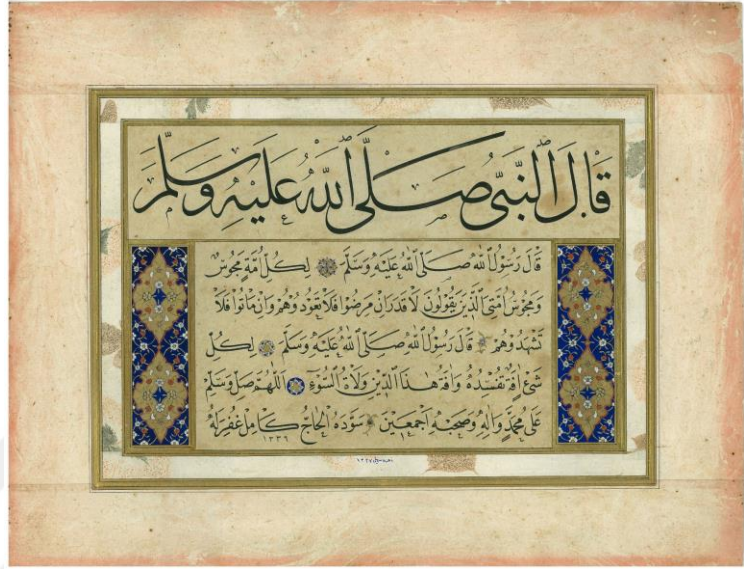 قَالَ النَّبِيُّ صَلَّى اللّٰهُ عَلَيْهِ وَسَلَّمَ
قَالَ رَسُولُ اللّٰهِ صَلَّى اللّٰهُ عَلَيْهِ وَسَلَّمَ لِكُلِّ اُمَّةٍ مَجُوسٌ
وَمَجُوسُ اُمَّتِى الَّذِينَ يَقُولُونَ لَا قَدَرَ اِنْ مَرِضُوا فَلَا تَعُودُوهُمْ وَاِنْ مَاتُوا فَلَا
تَشْهَدُوهُمْ قَالَ رَسُولُ اللّٰهِ صَلَّى اللّٰهُ عَلَيْهِ وَسَلَّمَ لِكُلِّ
شَئٍ اٰفَةٌ تُفْسِدُهُ وَاٰفَةُ هٰذَا الدِّينِ وُلَاةُ السُّوءِ اَللّٰهُمَّ صَلِّ وَسَلِّمْ
عَلٰى مُحَمَّدٍ وَاٰلِهِ وَصَحْبِهِ اَجْمَعِينَ سَوَّدَهُ الْحَاجُّ كَامِل غُفِرَ لَهُ
١٣٣٦